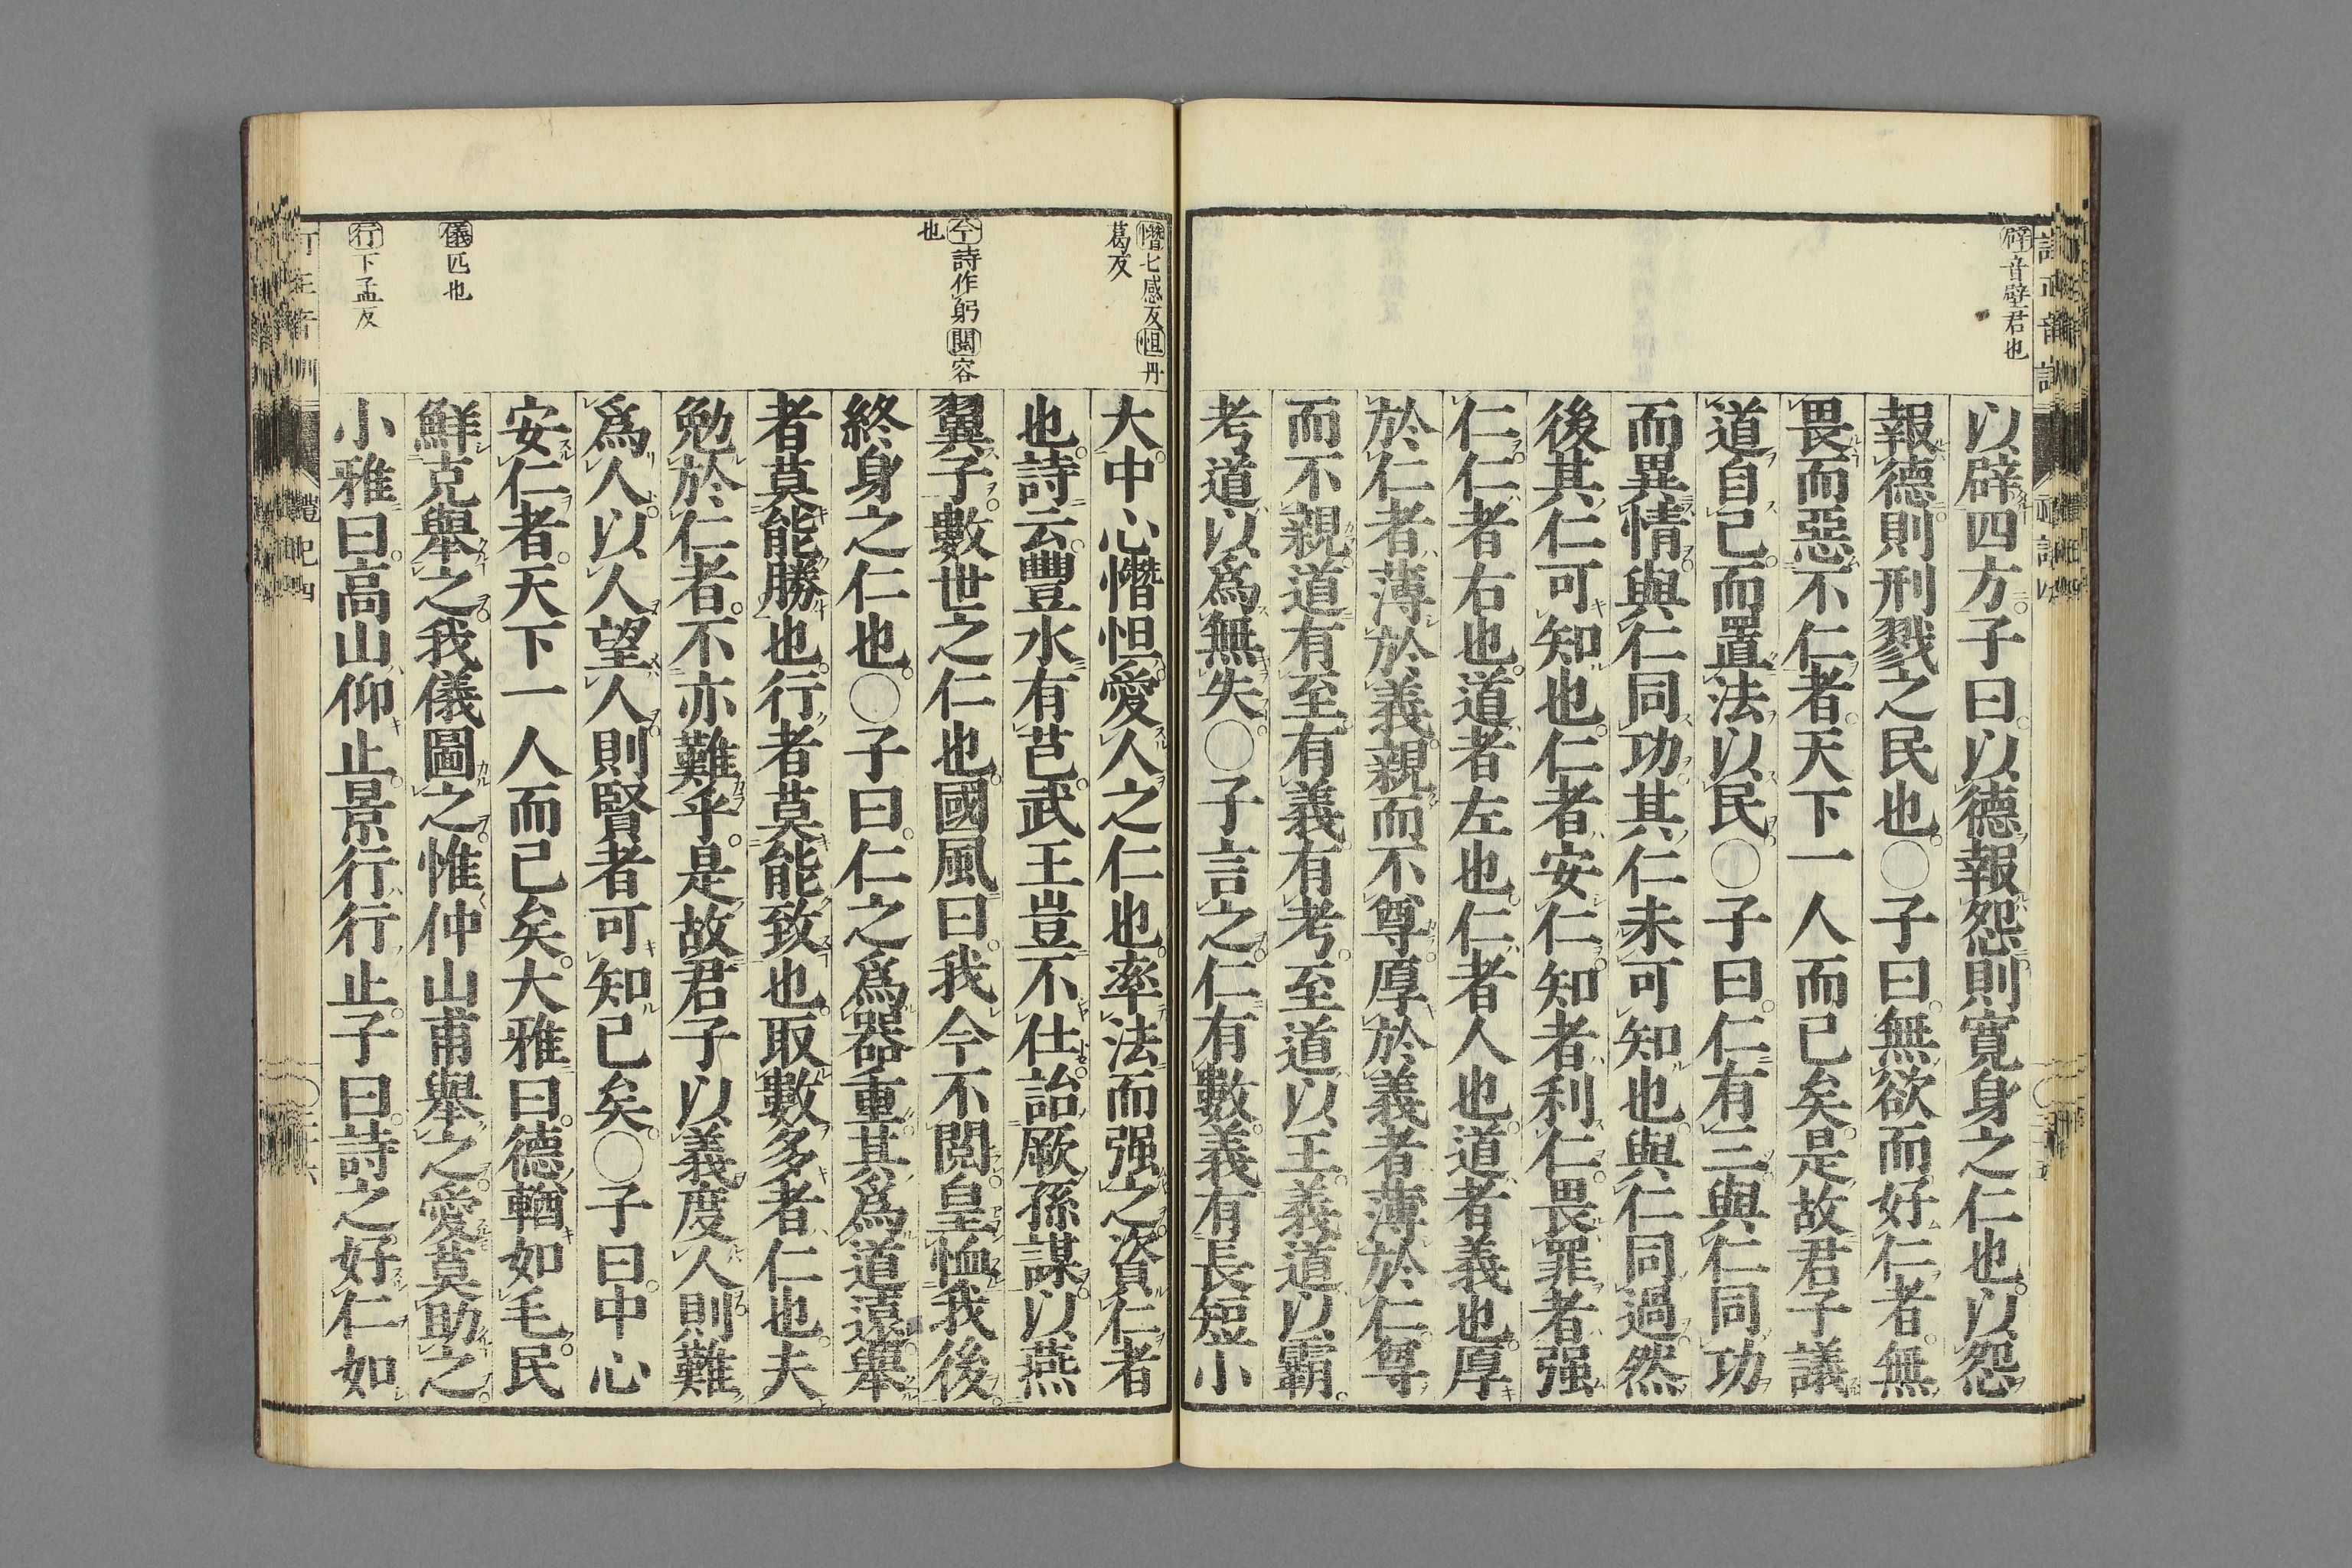 辟音壁君也
以辟四方子曰以德報怨則寛身之仁也以怨
報德則刑戮之民也○子曰無欲而好仁者無
畏而惡不仁者天下一人而已矣是故君子議
道自己而置法以民○子曰仁有三與仁同功
而異情與仁同功其仁未可知也與仁同過然
後其仁可知也仁者安仁知者利仁畏罪者强
仁仁者右也道者左也仁者人也道者義也厚
於仁者薄於義親而不尊厚於義者薄於仁尊
而不親道有至有義有考至道以王義道以霸
考道以爲無失○子言之仁有數義有長短小
憯七感反怛丹
葛反
今詩作躬閲容
也
儀匹也
行下孟反
大中心憯怛愛人之仁也率法而强之資仁者
也詩云豐水有芑武王豈不仕詒厥孫謀以燕
翼子數世之仁也國風曰我今不閲皇恤我後
終身之仁也○子曰仁之爲器重其爲道遠舉
者莫能勝也行者莫能致也取數多者仁也夫
勉於仁者不亦難乎是故君子以義度人則難
爲人以人望人則賢者可知已矣○子曰中心
安仁者天下一人而已矣大雅曰德輶如毛民
鮮克舉之我儀圖之惟仲山甫舉之愛莫助之
小雅曰高山仰止景行行止子曰詩之好仁如
禮記四